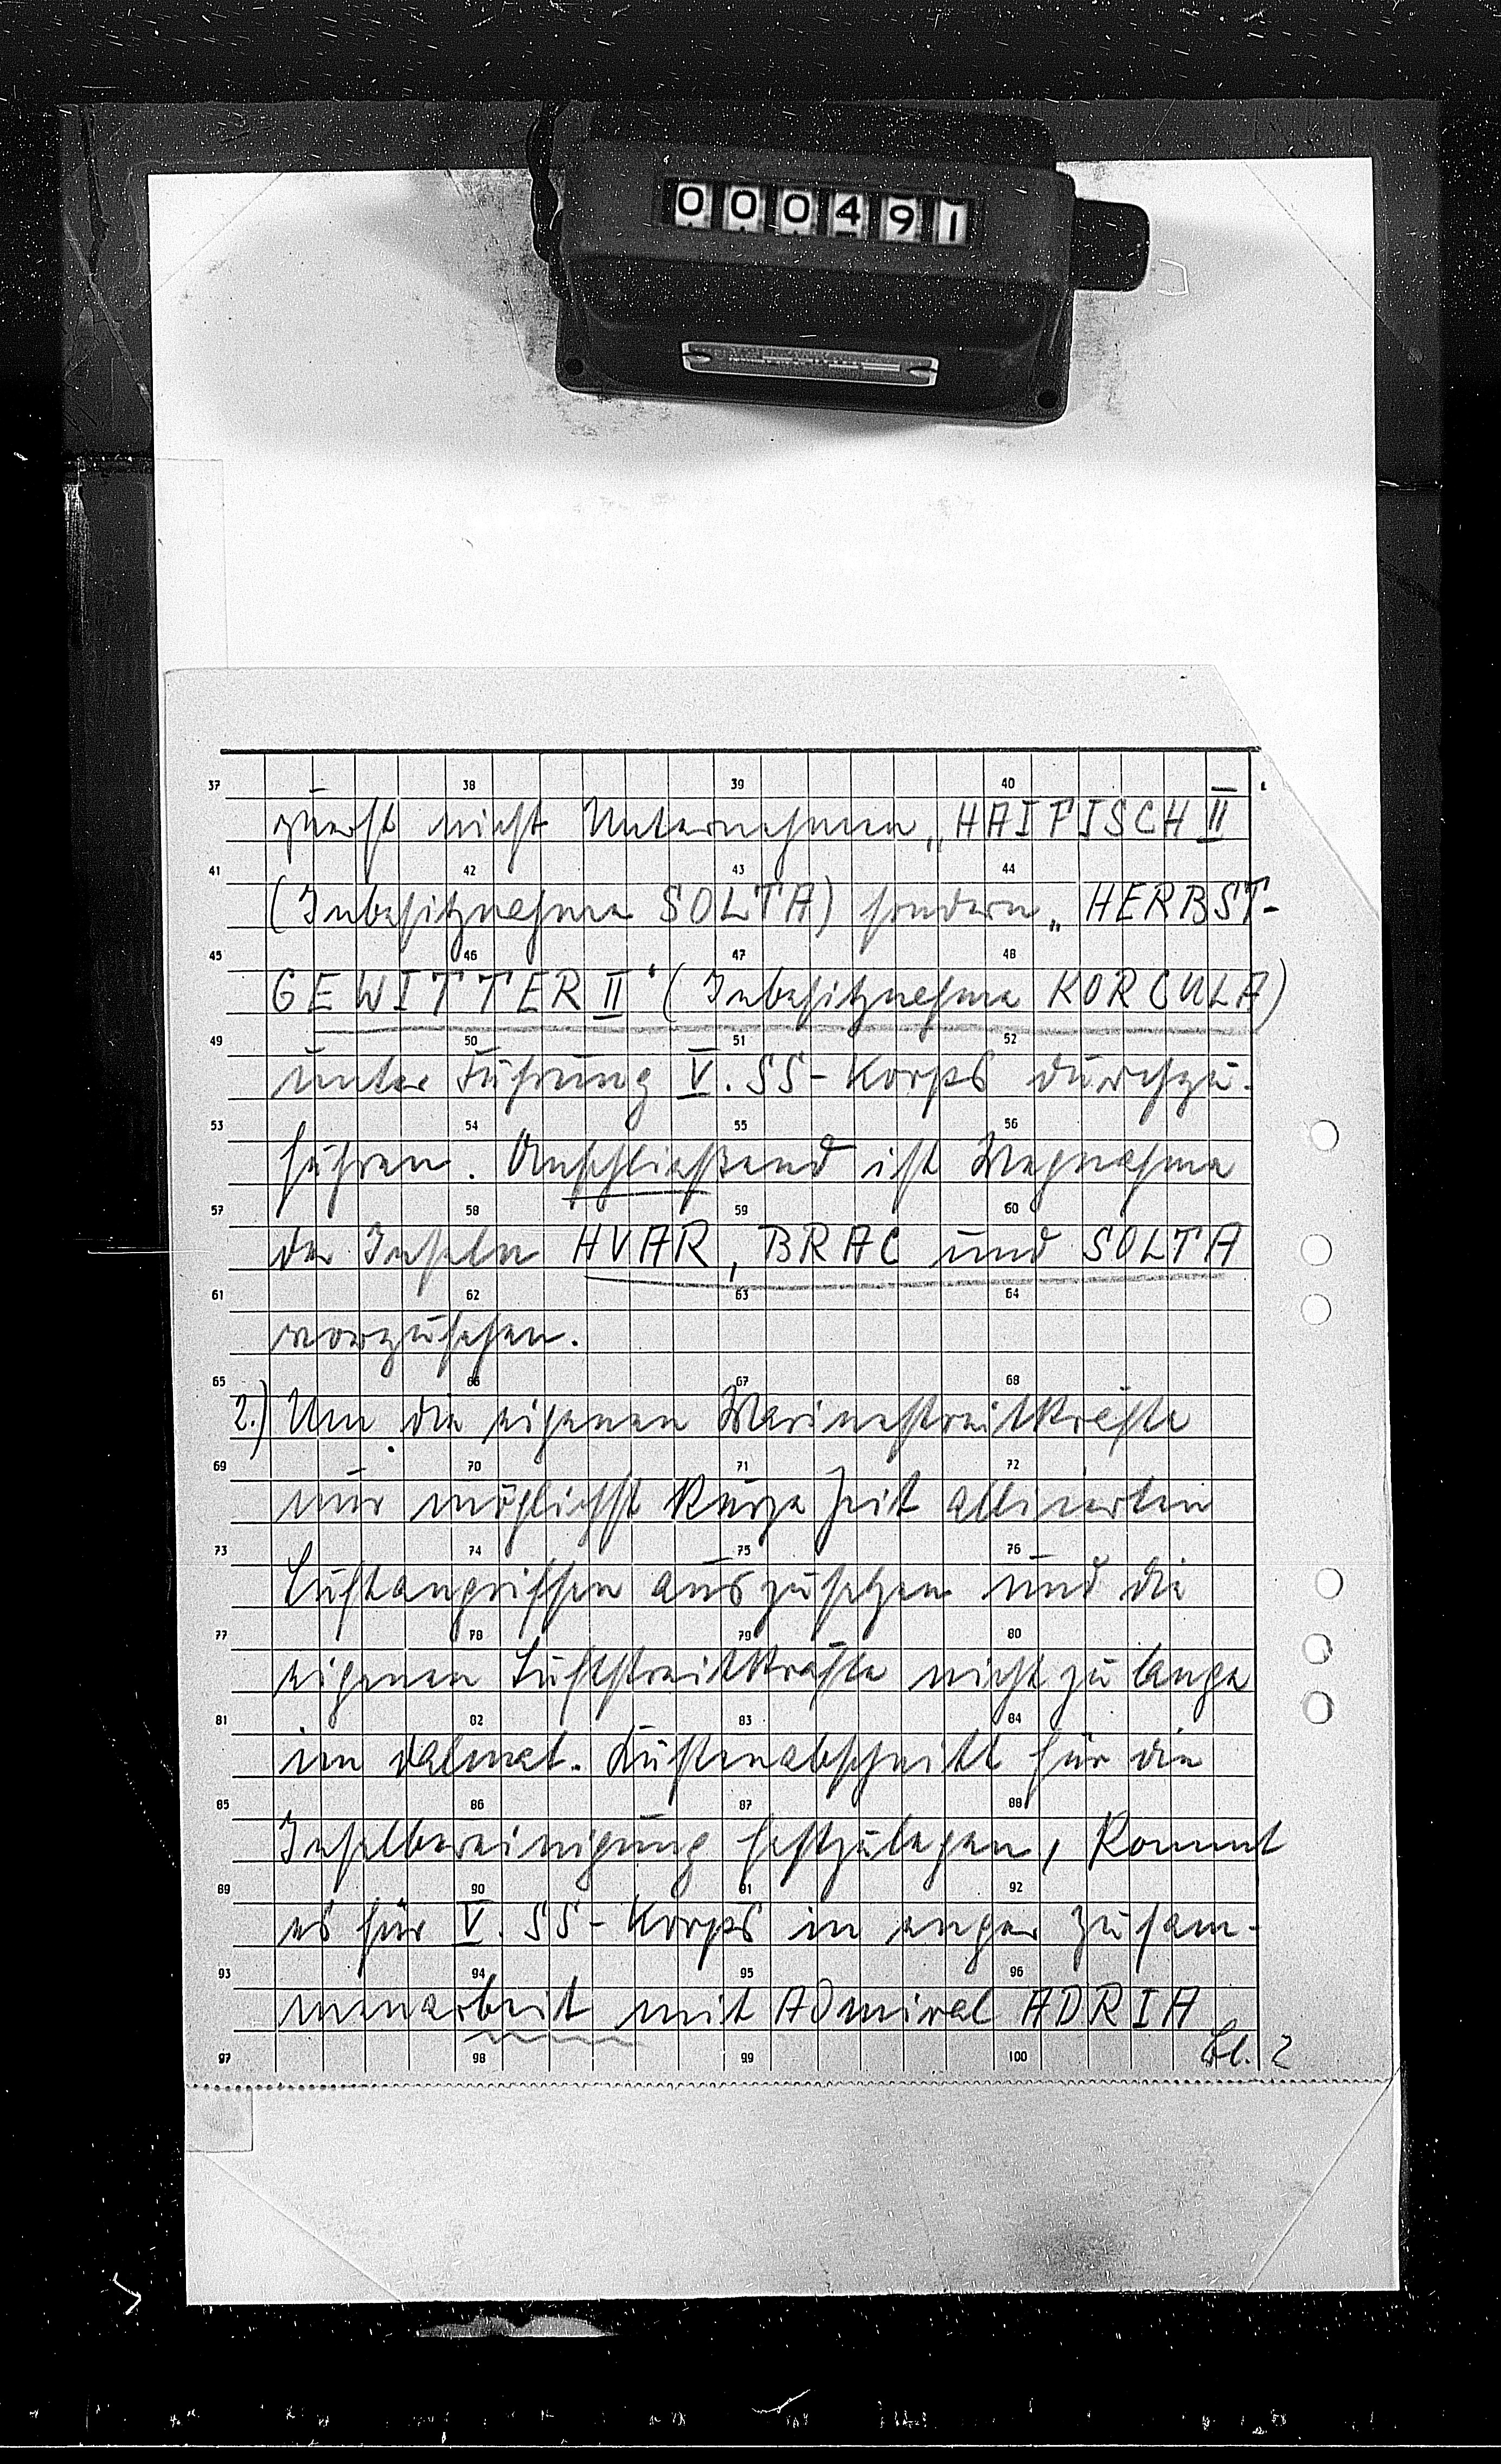 000491
37 38 39 40
zuerst nicht Unternehmen „HAIFISCH II
41 42 43 44
(Inbesitznahme SOLTA) sondern „HERBST-
45 46 47 48
GEWITTER II“ (Inbesitznahme KORCULA)
49 50 51 52
unter Führung V. SS-Korps durchzu-
53 54 55 56
führen. Anschließend ist Wegnahme
57 58 59 60
der Inseln HVAR, BRAC und SOLTA
61 62 63 64
vorzusehen.
65 66 67 68
2.) Um die eigenen Marinestreitkräfte
69 70 71 72
nur möglichst kurze Zeit alliierten
73 74 75 76
Luftangriffen auszusetzen und die
77 78 79 80
eigenen Luftstreitkräfte nicht zu lange
81 82 83 84
im dalmat. Küstenabschnitt für die
85 86 87 88
Inselbereinigung festzulegen, kommt
89 90 91 92
es für V. SS-Korps in enger Zusam-
93 94 95 96
menarbeit mit Admiral ADRIA
97 98 99 100
Bl. 2